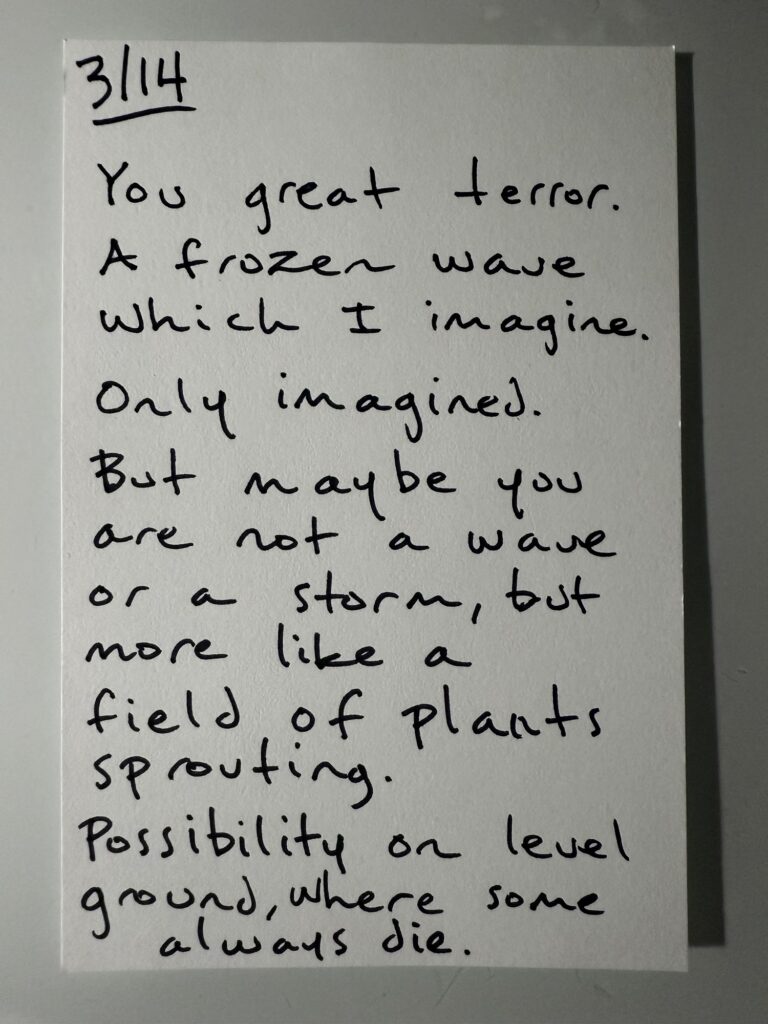 3/14
You great terror.
A frozen wave
which I imagine.
Only imagined.
But maybe you
are not a wave
or a storm, but
more like a
field of plants
sprouting.
Possibility on level
ground, where some
always die.